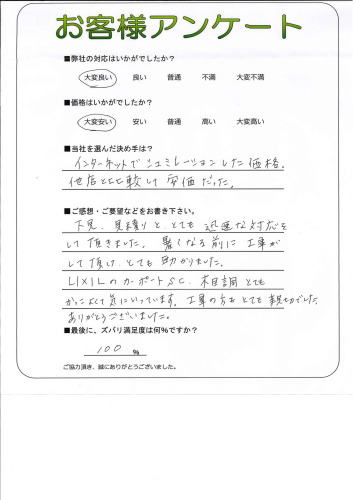 お客様アンケート
■弊社の対応はいかがでしたか？
大変良い 良い 普通 不満 大変不満
■価格はいかがでしたか？
大変安い 安い 普通 高い 大変高い
■当社を選んだ決め手は？
インターネットでシュミレーションした価格。
他店と比較して安価だった。
■ご感想・ご要望などをお書き下さい。
下見、見積りと、とても迅速な対応を
して頂きました。暑くなる前に工事が
して頂け、とても助かりました。
LIXILのカーポートSC、木目調とても
かっこよくて気にいっています。工事の方もとても親切でした
ありがとうございました。
■最後に、ズバリ満足度は何%ですか？
100 %
ご協力頂き、誠にありがとうございました。